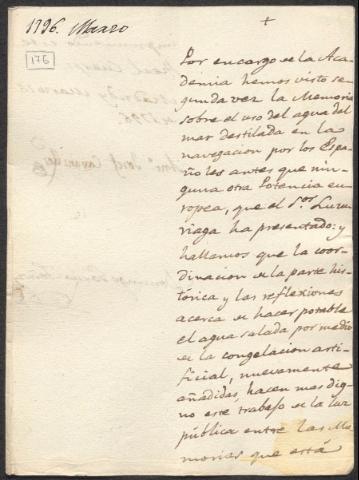 1796. Marzo
+
176
Por encargo de la Aca-
demia hemos visto se-
gunda vez la Memoria
sobre el uso del agua del
mar destilada en la
navegacion por los Espa-
ñoles antes que nin-
guna otra Potencia eu-
ropea, que el S.or Luzu-
riaga ha presentado: y
hallamos que la coor-
dinacion de la parte his-
tórica y las reflexiones
acerca de hacer potable
el agua salada por medio
de la congelacion arti-
ficial, nuevamente
añadidas, hacen mas dig-
no este trabajo de la luz
pública entre las Me-
morias que está